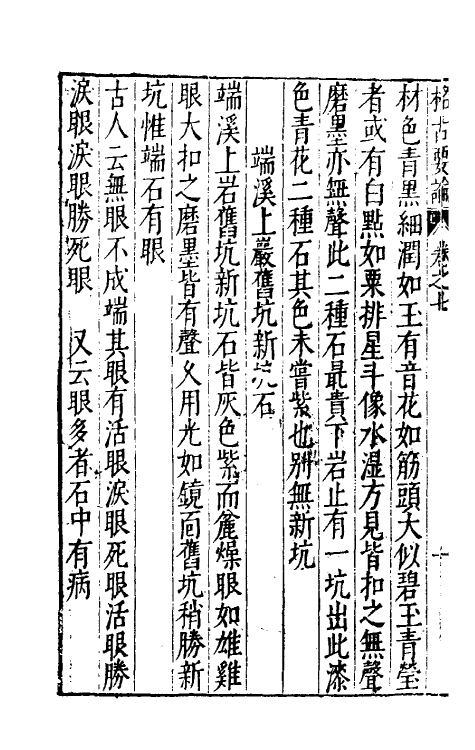 格古要論 卷之七 十
材色青黑細潤如玉有音花如筋頭大似碧玉青瑩
者或有白點如粟排星斗像水湿方見皆扣之無聲
磨墨亦無聲此二種石最貴下岩止有一坑出此漆
色青花二種石其色未嘗紫也辨無新坑
端溪上巖舊坑新坑石
端溪上岩舊坑新坑石皆灰色紫而麄燥眼如雄雞
眼大扣之磨墨皆有聲久用光如鏡面舊坑稍勝新
坑惟端石有眼
古人云無眼不成端其眼有活眼淚眼死眼活眼勝
淚眼淚眼勝死眼 又云眼多者石中有病